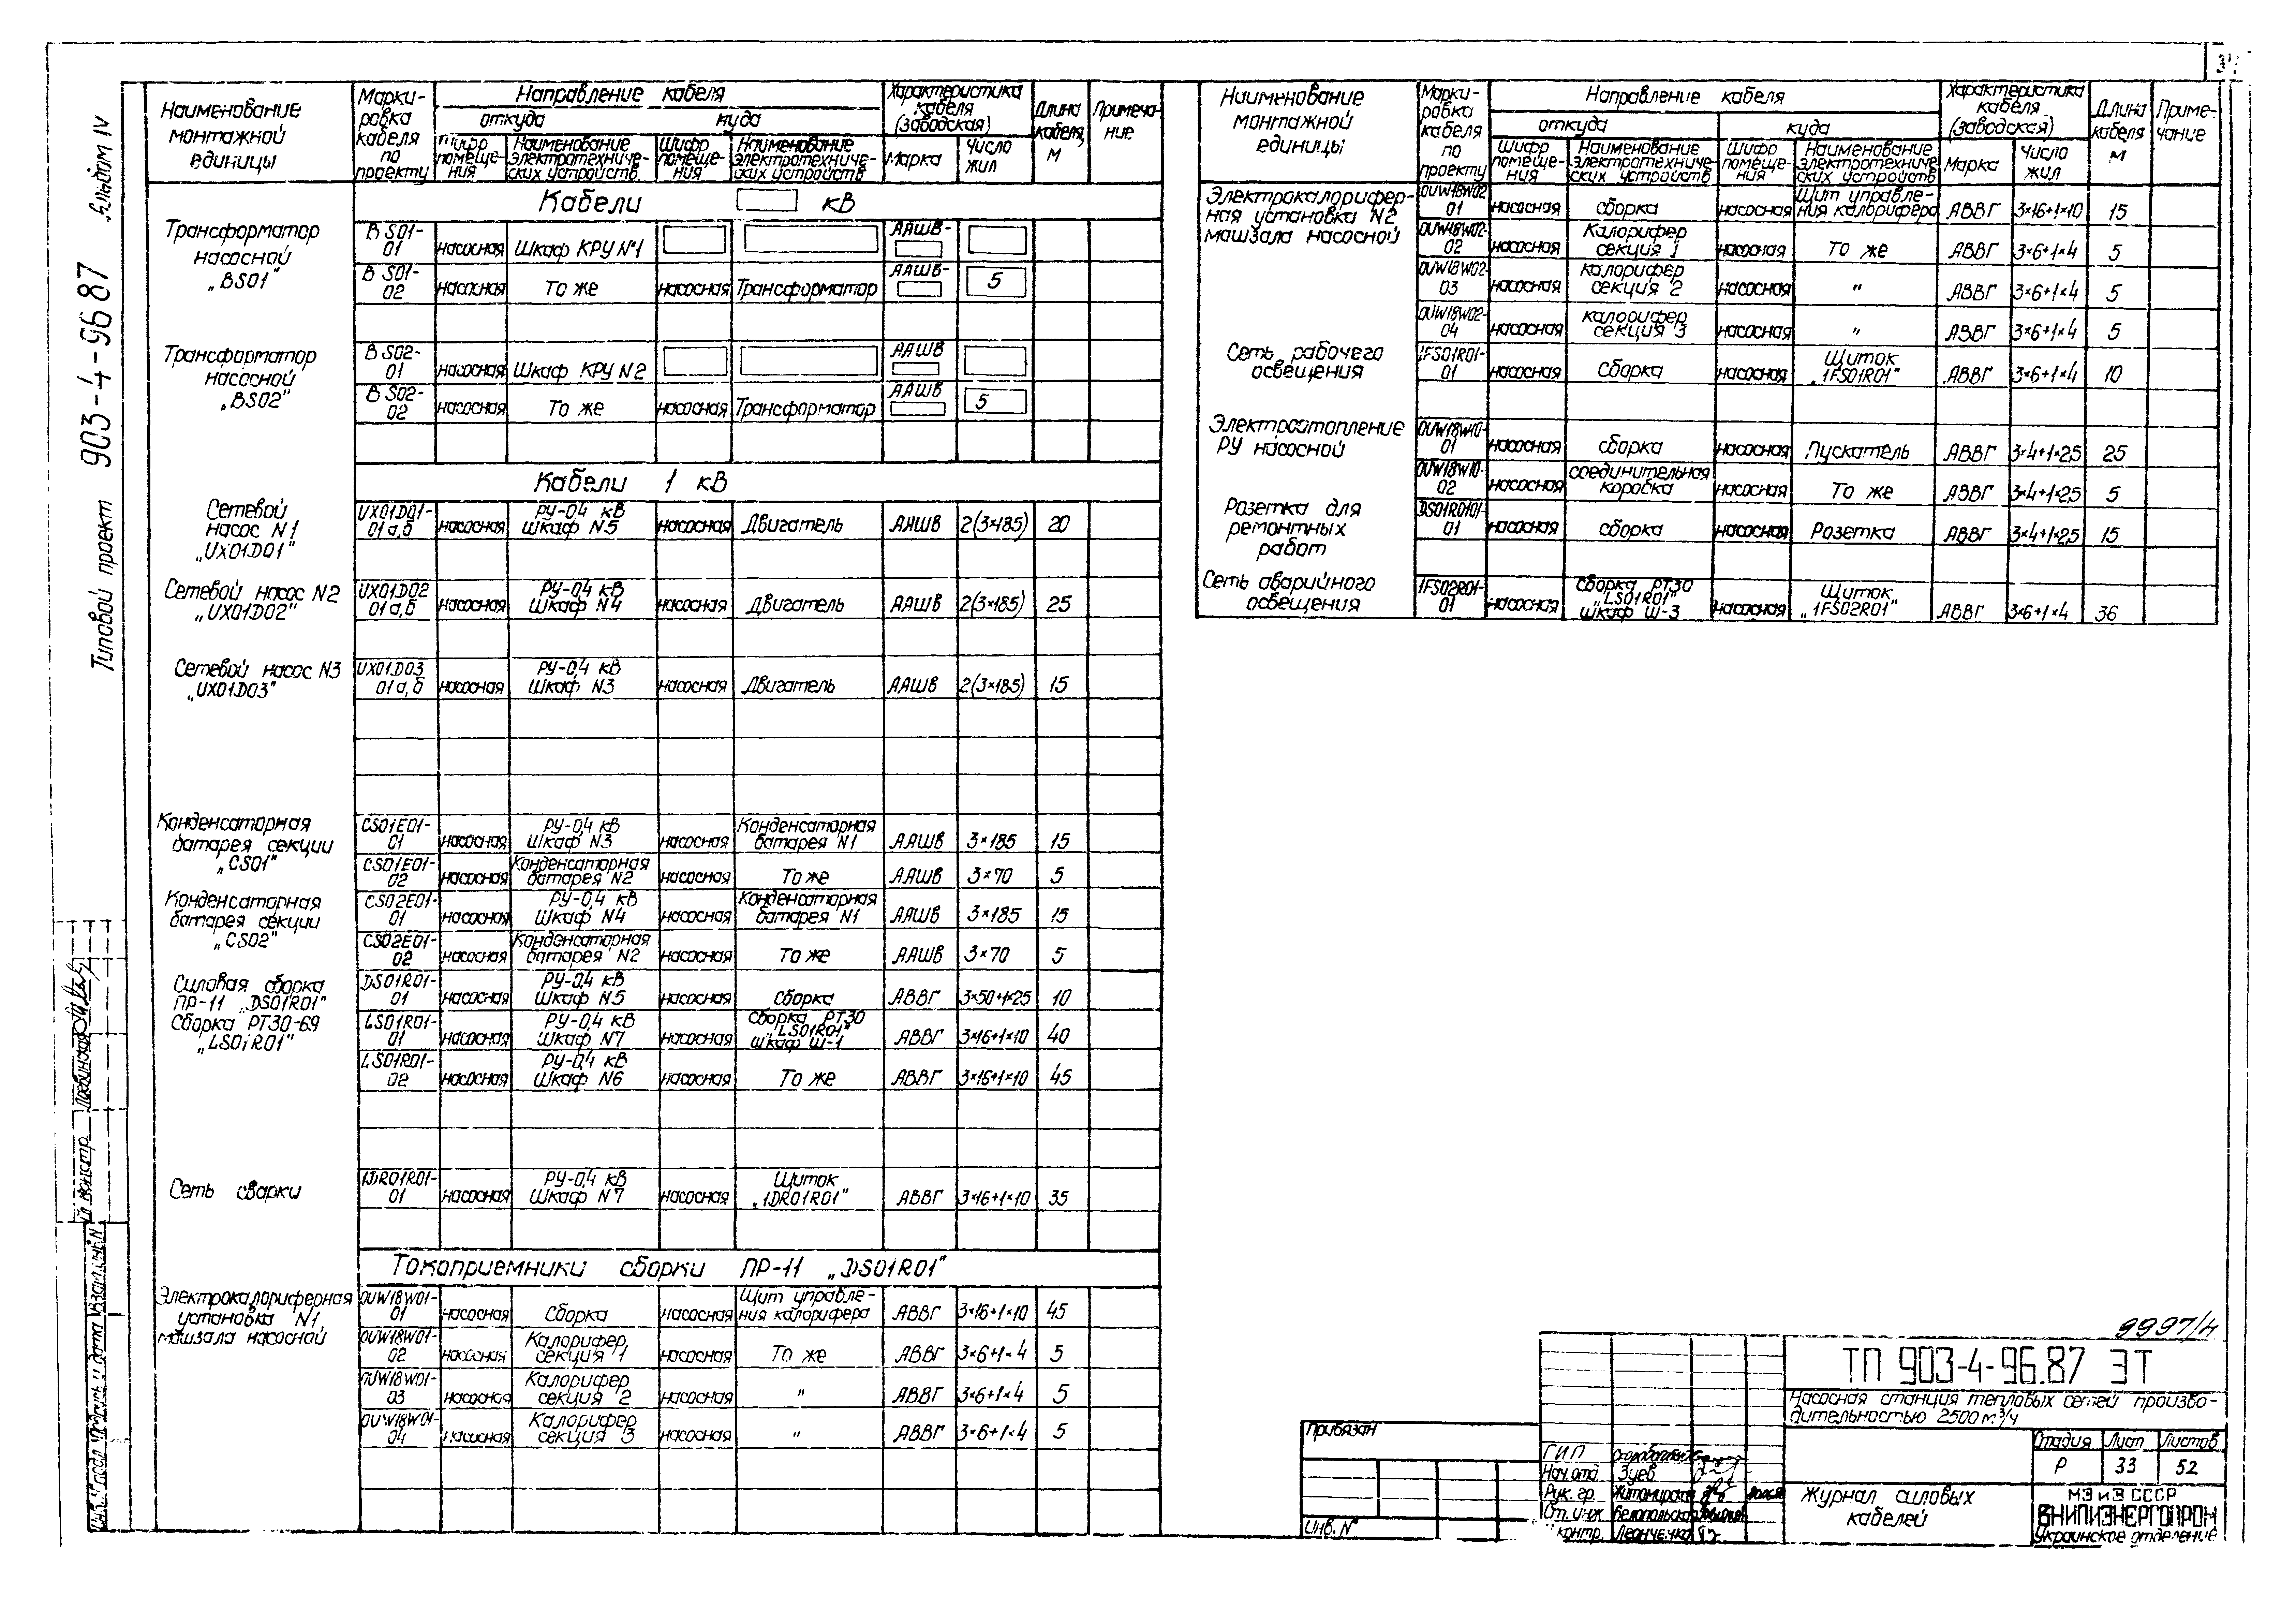 Типовой проект 903-4-96 87 Альбом IV
Наименование монтажной единицы
Маркировка кабеля по проекту
Направление кабеля
откуда куда
Шифр помещения
Наименование электротехнических устройств
Шифр помещения
Наименование электротехнических устройств
Характеристика кабеля (заводская)
Марка
Число жил
Длина кабеля, м
Примечание
Кабели кВ
Трансформатор насосной „BS01"
BS01-01 насосная Шкаф КРУ №1 ААШВ-
BS01-02 насосная То же насосная Трансформатор ААШВ- 5
Трансформатор насосной „BS02"
BS02-01 насосная Шкаф КРУ N2 ААШВ
BS02-02 насосная То же насосная Трансформатор ААШВ 5
Кабели 1 кВ
Сетевой насос N1 „UX01D01"
UX01D01-01 а,б насосная РУ-0,4 кВ Шкаф N5 насосная Двигатель ААШВ 2(3×185) 20
Сетевой насос N2 „UX01D02"
UX01D02 01 а,б насосная РУ-0,4 кВ Шкаф N4 насосная Двигатель ААШВ 2(3×185) 25
Сетевой насос N3 „UX01D03"
UX01D03 01 а,б насосная РУ-0,4 кВ Шкаф N3 насосная Двигатель ААШВ 2(3×185) 15
Конденсаторная батарея секции „CS01"
CS01E01-01 насосная РУ-0,4 кВ Шкаф N3 насосная Конденсаторная батарея N1 ААШВ 3×185 15
CS01E01-02 насосная Конденсаторная батарея N2 насосная То же ААШВ 3×70 5
Конденсаторная батарея секции „CS02"
CS02E01-01 насосная РУ-0,4 кВ Шкаф N4 насосная Конденсаторная батарея N1 ААШВ 3×185 15
CS02E01-02 насосная Конденсаторная батарея N2 насосная То же ААШВ 3×70 5
Силовая сборка ПР-11 „DS01R01"
DS01R01-01 насосная РУ-0,4 кВ Шкаф N5 насосная Сборка АВВГ 3×50+1×25 10
Сборка РТ30-69 „LS01R01"
LS01R01-01 насосная РУ-0,4 кВ Шкаф N7 насосная Сборка РТ30 „LS01R01" шкаф Ш-1 АВВГ 3×16+1×10 40
LS01R01-02 насосная РУ-0,4 кВ Шкаф N6 насосная То же АВВГ 3×16+1×10 45
Сеть сварки
1DR01R01-01 насосная РУ-0,4 кВ Шкаф N7 насосная Щиток „1DR01R01" АВВГ 3×16+1×10 35
Токоприемники сборки ПР-11 „DS01R01"
Электрокалориферная установка N1 машзала насосной
0UW18W01-01 насосная Сборка насосная Щит управления калорифера АВВГ 3×16+1×10 45
0UW18W01-02 насосная Калорифер секция 1 насосная То же АВВГ 3×6+1×4 5
0UW18W01-03 насосная Калорифер секция 2 насосная " АВВГ 3×6+1×4 5
0UW18W01-04 насосная Калорифер секция 3 насосная " АВВГ 3×6+1×4 5
Наименование монтажной единицы
Маркировка кабеля по проекту
Направление кабеля
откуда куда
Шифр помещения
Наименование электротехнических устройств
Шифр помещения
Наименование электротехнических устройств
Характеристика кабеля (заводская)
Марка
Число жил
Длина кабеля м
Примечание
Электрокалориферная установка N2 машзала насосной
0UW18W02 01 насосная сборка насосная Щит управления калорифера АВВГ 3×16+1×10 15
0UW18W02-02 насосная Калорифер секция 1 насосная То же АВВГ 3×6+1×4 5
0UW18W02-03 насосная калорифер секция 2 насосная " АВВГ 3×6+1×4 5
0UW18W02-04 насосная калорифер секция 3 насосная " АВВГ 3×6+1×4 5
Сеть рабочего освещения
1FS01R01-01 насосная сборка насосная Щиток „1FS01R01" АВВГ 3×6+1×4 10
Электроотопление РУ насосной
0UW18W10-01 насосная сборка насосная Пускатель АВВГ 3×4+1×2,5 25
0UW18W10-02 насосная соединительная коробка насосная То же АВВГ 3×4+1×2,5 5
Розетка для ремонтных работ
DS01R0101-01 насосная сборка насосная Розетка АВВГ 3×4+1×2,5 15
Сеть аварийного освещения
1FS02R01-01 насосная сборка РТ30 „LS01R01" шкаф Ш-3 насосная Щиток „1FS02R01" АВВГ 3×6+1×4 36
9997/4
ТП 903-4-96.87 ЭТ
Насосная станция тепловых сетей производительностью 2500 м³/ч
Стадия Лист Листов
Р 33 52
Журнал силовых кабелей
МЭ и Э СССР
ВНИПИЭНЕРГОПРОМ
Украинское отделение
Привязан
Инв. N
ГИП
Нач. отд. Зуев
Рук. гр.
Ст. инж
контр. Леонченко